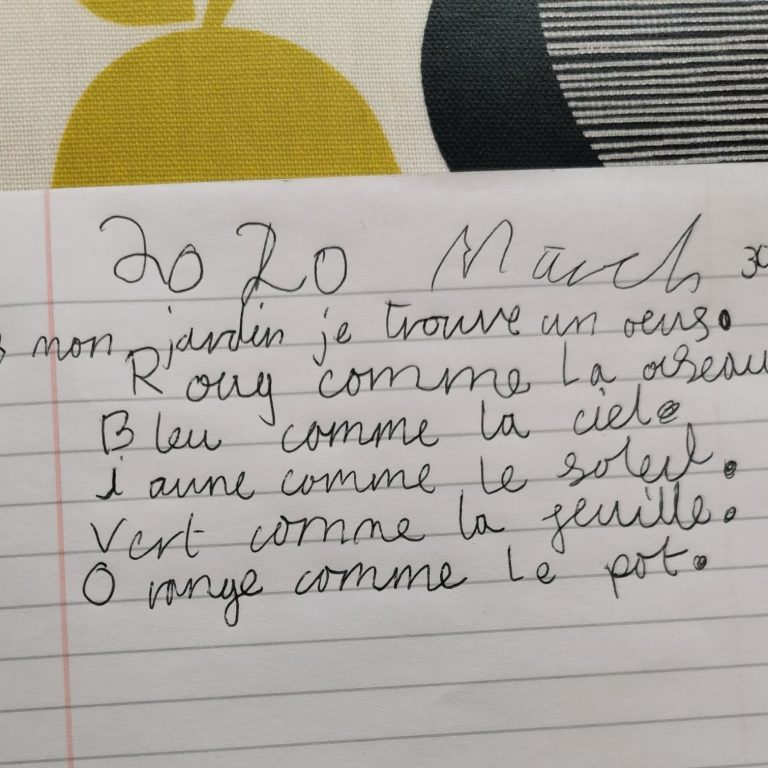 2020 March 30
mon jardin je trouve un oeus.
Roug comme La oiseau
Bleu comme la ciel.
jaune comme le soleil.
Vert comme la feuille.
Orange comme le pot.